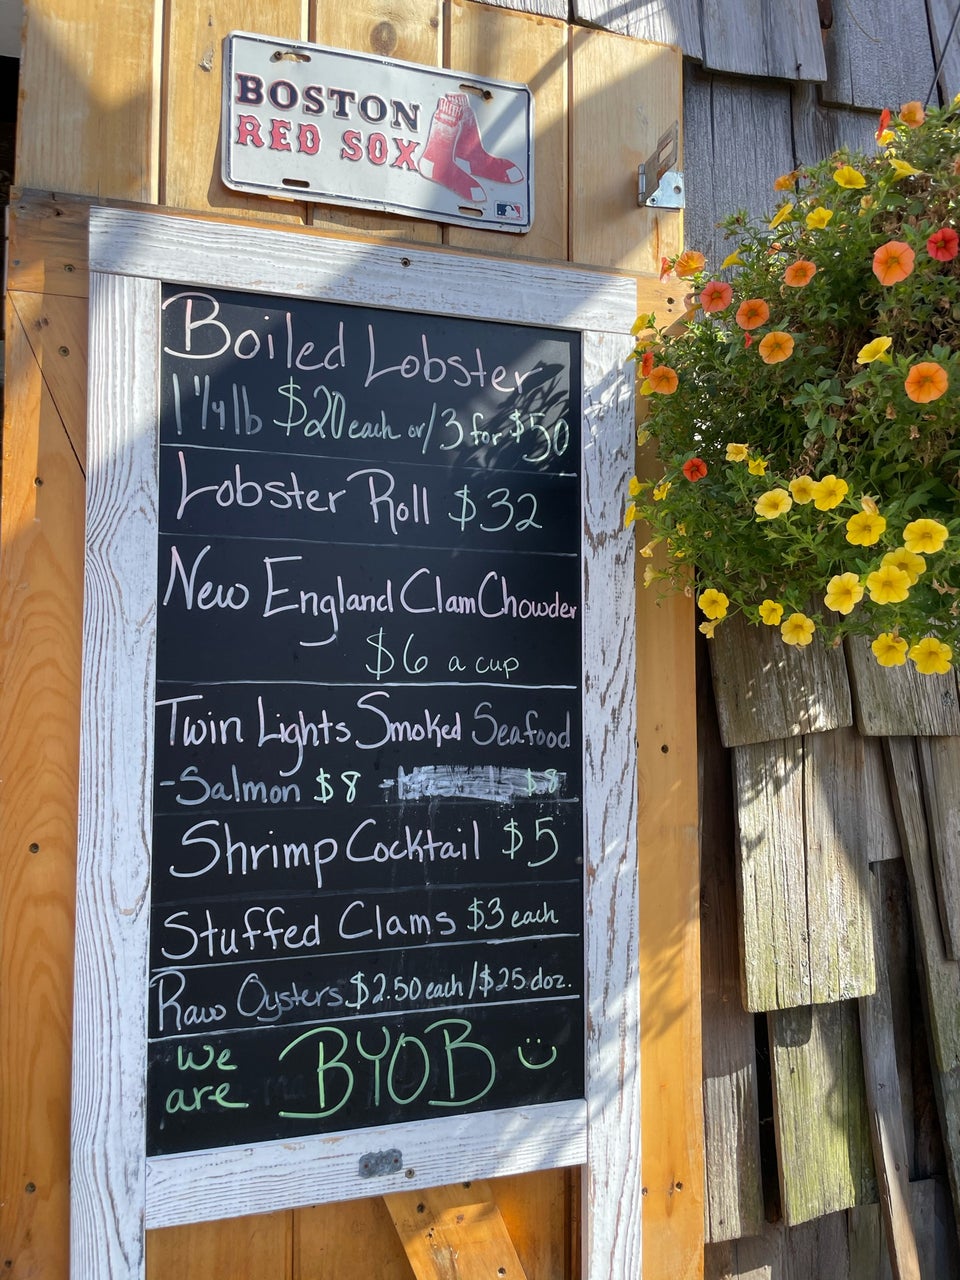 BOSTON
RED SOX
Boiled Lobster
1 1/4 lb $20 each or/3 for $50
Lobster Roll $32
New England Clam Chowder
$6 a cup
Twin Lights Smoked Seafood
-Salmon $8 - $8
Shrimp Cocktail $5
Stuffed Clams $3 each
Raw Oysters $2.50 each/$25 doz.
we are BYOB